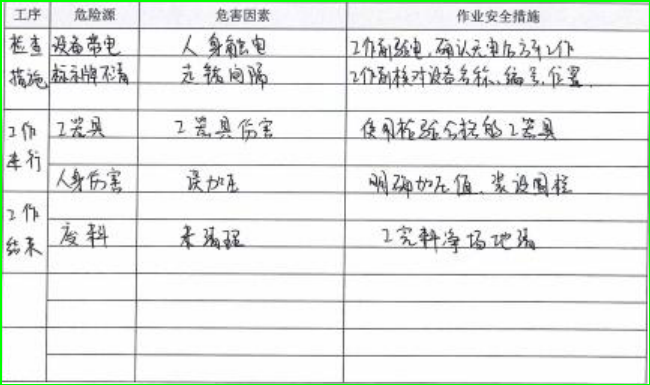 工序 危险源 危害因素 作业安全措施
检查 设备带电 人身触电 工作前验电,确认无电后方可工作
措施 标示牌不清 走错间隔 工作前核对设备名称、编号、位置.
工作 工器具 工器具伤害 使用检验合格的工器具
进行
人身伤害 误加压 明确加压值、装设围栏
工作
结束 废料 未清理 工完料净场地清